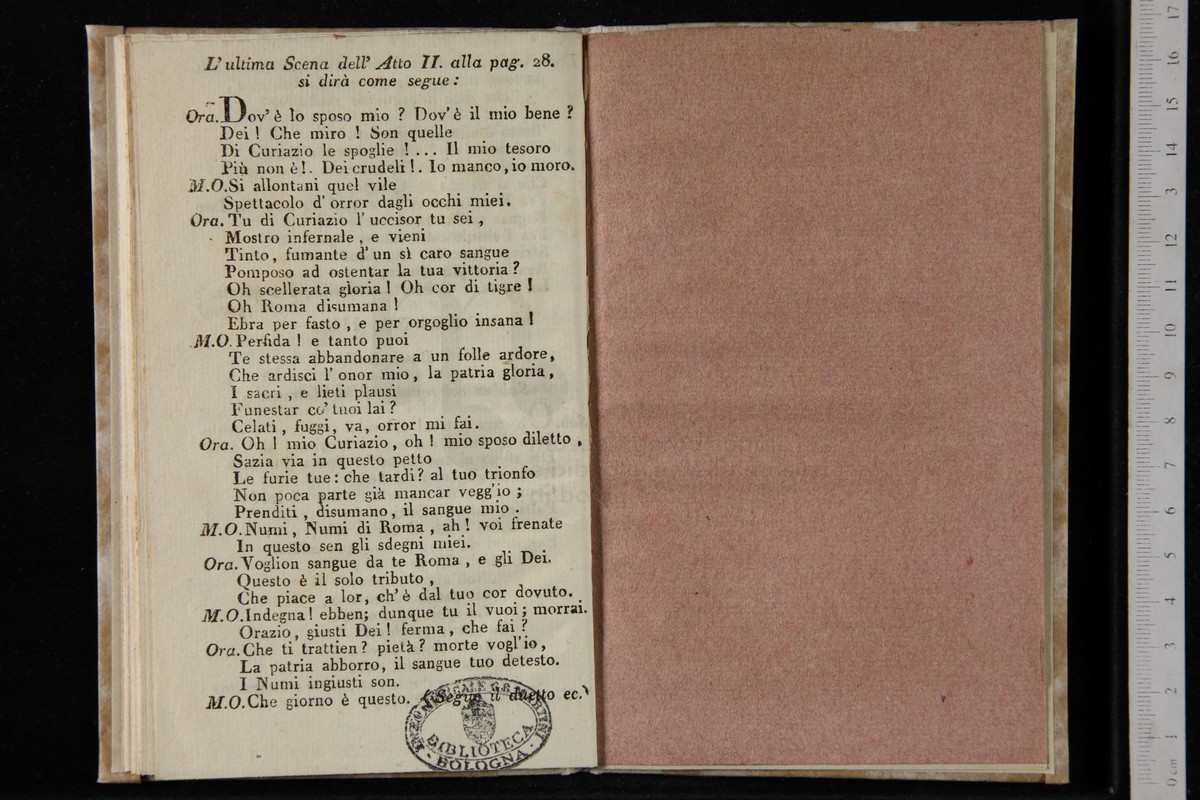 L' ultima Scena dell' Atto II. alla pag. 28.
si dirà come segue :
Ora. Dov' è lo sposo mio ? Dov' è il mio bene ?
Dei ! Che miro ! Son quelle
Di Curiazio le spoglie ! ... Il mio tesoro
Più non è !. Dei crudeli !. Io manco, io moro.
M.O. Si allontani quel vile
Spettacolo d' orror dagli occhi miei.
Ora. Tu di Curiazio l' uccisor tu sei ,
Mostro infernale , e vieni
Tinto, fumante d' un sì caro sangue
Pomposo ad ostentar la tua vittoria ?
Oh scellerata gloria ! Oh cor di tigre !
Oh Roma disumana !
Ebra per fasto , e per orgoglio insana !
M.O. Perfida ! e tanto puoi
Te stessa abbandonare a un folle ardore,
Che ardisci l' onor mio , la patria gloria ,
I sacri , e lieti plausi
Funestar co' tuoi lai ?
Celati , fuggi, va, orror mi fai.
Ora. Oh ! mio Curiazio , oh ! mio sposo diletto ,
Sazia via in questo petto
Le furie tue : che tardi ? al tuo trionfo
Non poca parte già mancar vegg'io ;
Prenditi , disumano, il sangue mio .
M.O. Numi, Numi di Roma , ah ! voi frenate
In questo sen gli sdegni miei.
Ora. Voglion sangue da te Roma , e gli Dei.
Questo è il solo tributo ,
Che piace a lor, ch' è dal tuo cor dovuto.
M.O. Indegna ! ebben; dunque tu il vuoi ; morrai.
Orazio, giusti Dei ! ferma , che fai ?
Ora. Che ti trattien ? pietà ? morte vogl'io ,
La patria abborro, il sangue tuo detesto.
I Numi ingiusti son.
M.O. Che giorno è questo. ( Segue il duetto ec.)
BIBLIOTECA
BOLOGNA
17
16
15
14
13
12
11
10
9
8
7
6
5
4
3
2
1
0 cm